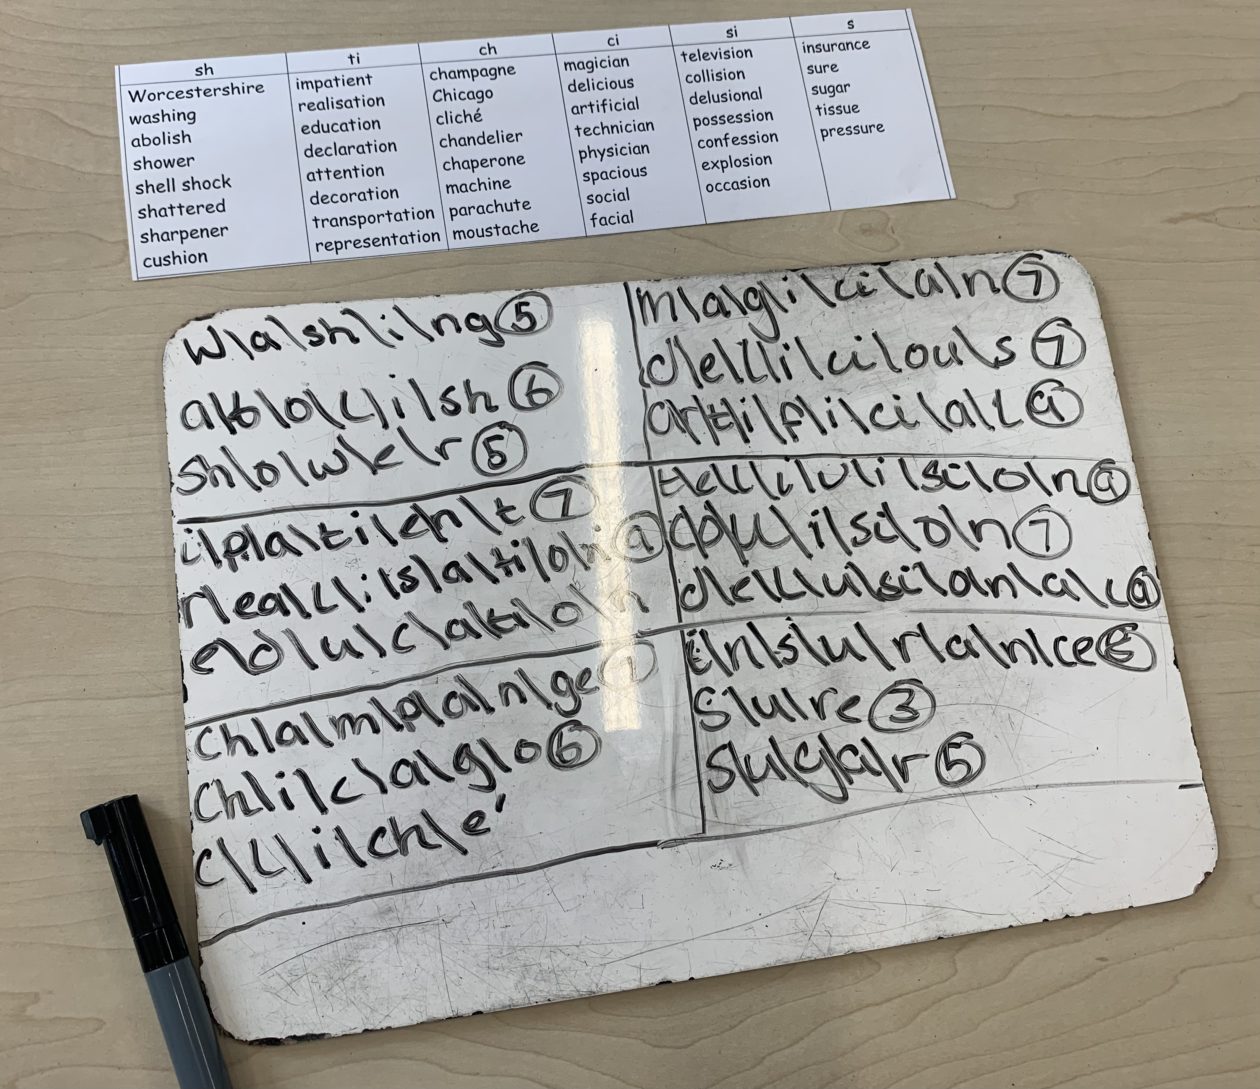 sh ti ch ci si s
Worcestershire impatient champagne magician television insurance
washing realisation Chicago delicious collision sure
abolish education cliché artificial delusional sugar
shower declaration chandelier technician possession tissue
shell shock attention chaperone physician confession pressure
shattered decoration machine spacious explosion
sharpener transportation parachute social occasion
cushion representation moustache facial
w\a\sh\i\ng 5
a\b\o\l\i\sh 6
sh\o\w\e\r 5
i\p\a\ti\e\n\t 7
r\ea\l\i\s\a\ti\o\n 9
e\d\u\c\a\ti\o\n
ch\a\m\p\a\n\ge 7
Ch\i\c\a\g\o 6
c\l\i\ch\é
m\a\g\i\ci\a\n 7
d\e\l\i\ci\ou\s 7
ar\t\i\f\i\ci\a\l 9
si\o\n 9
\i\si\o\n 7
d\e\l\u\si\o\n\a\l 9
i\n\s\u\r\a\n\ce
s\u\re 3
s\u\g\a\r 5